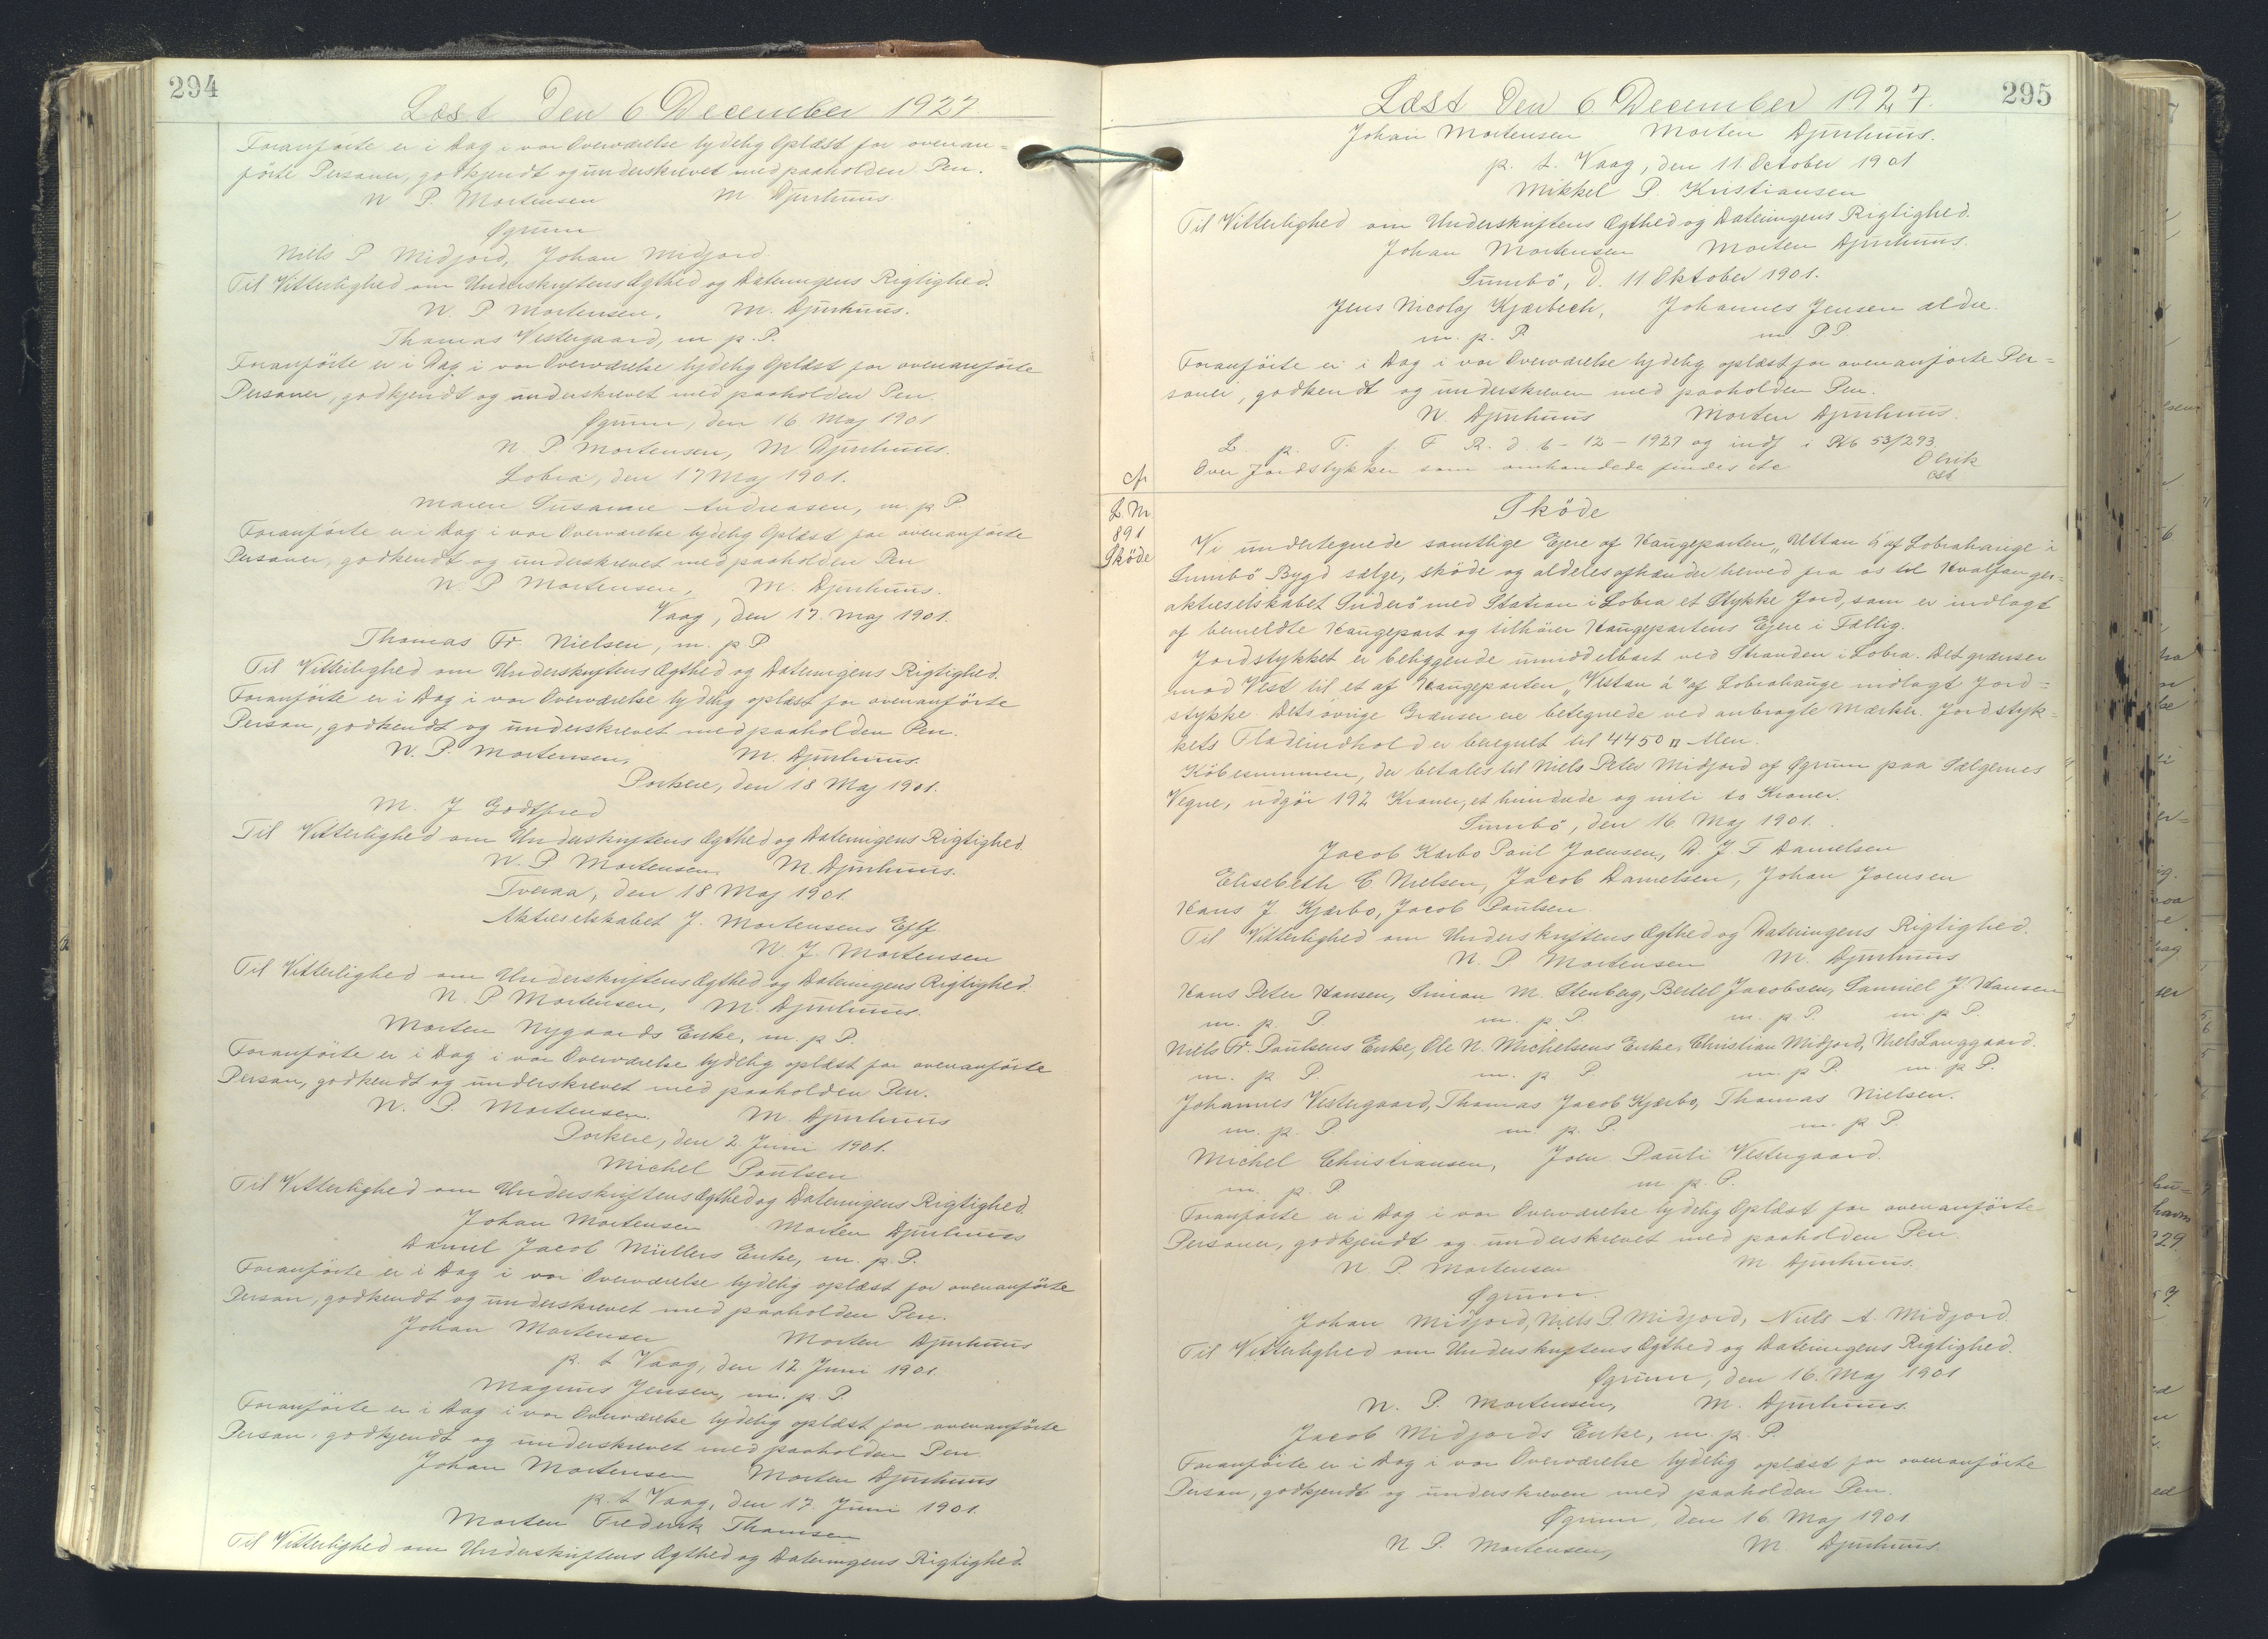 294
Læst den 6 December 1927
Foranførte er i Dag i vor Overværelse lydelig Oplæst for ovenan=
førte Personer, godkjendt og underskrevet med paaholden Pen.
N P. Mortensen M Djurhuus.
Øgrum
Niels P Midjord, Johan Midjord
Til Vitterlighed om Underskriftens Ægthed og Dateringens Rigtighed.
N. P Mortensen, M. Djurhuus.
Thomas Vestergaard, m. p. P.
Foranførte er i Dag i vor Overværelse lydelig Oplæst for ovenanførte
Personer, godkjendt og underskrevet med paaholden Pen.
Øgrum, den 16. Maj 1901
N. P Mortensen, M Djurhuus.
Lobra, den 17 Maj 1901.
Maren Susanne Andreasen, m. p. P
Foranførte er i Dag i vor Overværelse lydelig Oplæst for ovenanførte
Personer, godkendt og underskrevet med paaholden Pen
N. P Mortensen, M. Djurhuus.
Vaag, den 17. Maj 1901.
Thomas Fr. Nielsen, m. p. P
Til Vitterlighed om Underskriftens Ægthed og Dateringens Rigtighed.
Foranførte er i Dag i vor Overværelse lydelig oplæst for ovenanførte
Person, godkendt og underskrevet med paaholden Pen.
N. P. Mortensen, M. Djurhuus.
Porkere, den 18 Maj 1901.
M. J Godtfred
Til Vitterlighed om Underskriftens Ægthed og Dateringens Rigtighed.
N. P. Mortensen, M. Djurhuus.
Tveraa, den 18 Maj 1901.
Aktieselskabet J. Mortensens Eftf.
N. J. Mortensen
Til Vitterlighed om Underskriftens Ægthed og Dateringens Rigtighed.
N. P Mortensen, M. Djurhuus.
Morten Nygaards Enke, m. p. P.
Foranførte er i Dag i vor Overværelse lydelig oplæst for ovenanførte
Person, godkendt og underskrevet med paaholden Pen.
N. P. Mortensen. M. Djurhuus
Porkere, den 2. Juni 1901.
Michel Poulsen
Til Vitterlighed om Underskriftens Ægthed og Dateringens Rigtighed.
Johan Mortensen Morten Djurhuus
Daniel Jacob Müllers Enke, m. p. P.
Foranførte er i Dag i vor Overværelse lydelig oplæst for ovenanførte
Person, godkendt og underskrevet med paaholden Pen.
Johan Mortensen Morten Djurhuus
p. t. Vaag, den 12. Juni 1901.
Magnus Jensen, m. p. P.
Foranførte er i Dag i vor Overværelse lydelig oplæst for ovenanførte
Person, godkjendt og underskrevet med paaholden Pen.
Johan Mortensen Morten Djurhuus
p. t. Vaag, den 17. Juni 1901.
Morten Frederik Thomsen
Til Vitterlighed om Underskriftens Ægthed og Dateringens Rigtighed.
295
Læst den 6 December 1927.
Johan Mortensen Morten Djurhuus.
p. t. Vaag, den 11. October 1901
Mikkel P. Kristiansen
Til Vitterlighed om Underskriftens Ægthed og Dateringens Rigtighed.
Johan Mortensen Morten Djurhuus.
Sumbö, d. 11 Oktober 1901.
Jens Nicolaj Kjærbech, Johannes Jensen ældre.
m. p. P. m. P P.
Foranførte er i Dag i vor Overværelse lydelig oplæst for ovenanførte Per=
soner, godkendt og underskreven med paaholden Pen.
N. Djurhuus Morten Djurhuus.
L. p. T. f. F R. d. 6 - 12 - 1927 og indf i Pb 53/293.
Over Jordstykker som omhandlede findes etc
L. Nr.
891
Sköde
Sköde
Vi undertegnede samtlige Ejere af Haugeparten „Uttan á" af Lobrahauge i
Sumbö Bygd sælge, sköde og aldeles afhænder herved fra os til Hvalfanger=
aktieselskabet Suderö med Station i Lobra et Stykke Jord, som er indlagt
af bemeldte Haugepart og tilhører Haugepartens Ejere i Fællig.
Jordstykket er beliggende umiddelbart ved Stranden i Lobra. Det grænser
mod Vest til et af Haugeparten „Vestan á" af Lobrahauge indlagt Jord=
stykke. Dets øvrige Grænser ere betegnede ved anbragte Mærker. Jordstyk=
kets Fladeindhold er beregnet til 4450 □ Alen.
Köbesummen, der betales til Niels Peter Midjord af Øgrum paa Sælgernes
Vegne, udgör 192 Kroner, et hundrede og niti to Kroner.
Sumbö, den 16. Maj 1901.
Jacob Kærbo Poul Joensen, D. J F Danielsen
Elisebeth C. Nielsen, Jacob Danielsen, Johan Joensen
Hans J. Kjærbo, Jacob Poulsen.
Til Vitterlighed om Underskriftens Ægthed og Dateringens Rigtighed.
N. P Mortensen M. Djurhuus
Hans Peter Hansen, Simon M. Stenberg, Bertel Jacobsen, Samuel J. Hansen
m. p. P. m. p. P. m. p. P. m. p. P.
Niels Fr. Poulsens Enke, Ole N. Michelsens Enke, Christian Midjord, Niels Langgaard.
m. p. P. m. p. P. m. p. P. m. p. P.
Johannes Vestergaard, Thomas Jacob Kjærbo, Thomas Nielsen.
m. p. P. m. p. P. m. p. P.
Michel Christiansen, Joen Pauli Vestergaard.
m. p. P m. p. P.
Foranførte er i Dag i vor Overværelse lydelig Oplæst for ovenanførte
Personer, godkjendt og underskrevet med paaholden Pen.
N. P. Mortensen M Djurhuus.
Øgrum.
Johan Midjord, Niels P Midjord, Niels A. Midjord.
Til Vitterlighed om Underskriftens Ægthed og Dateringens Rigtighed.
Øgrum, den 16. Maj 1901
N. P. Mortensen, M. Djurhuus.
Jacob Midjords Enke, m. p. P.
Foranførte er i Dag i vor Overværelse lydelig oplæst for ovenanførte
Person, godkjendt og underskreven med paaholden Pen.
Øgrum, den 16. Maj 1901
N P. Mortensen, M Djurhuus.